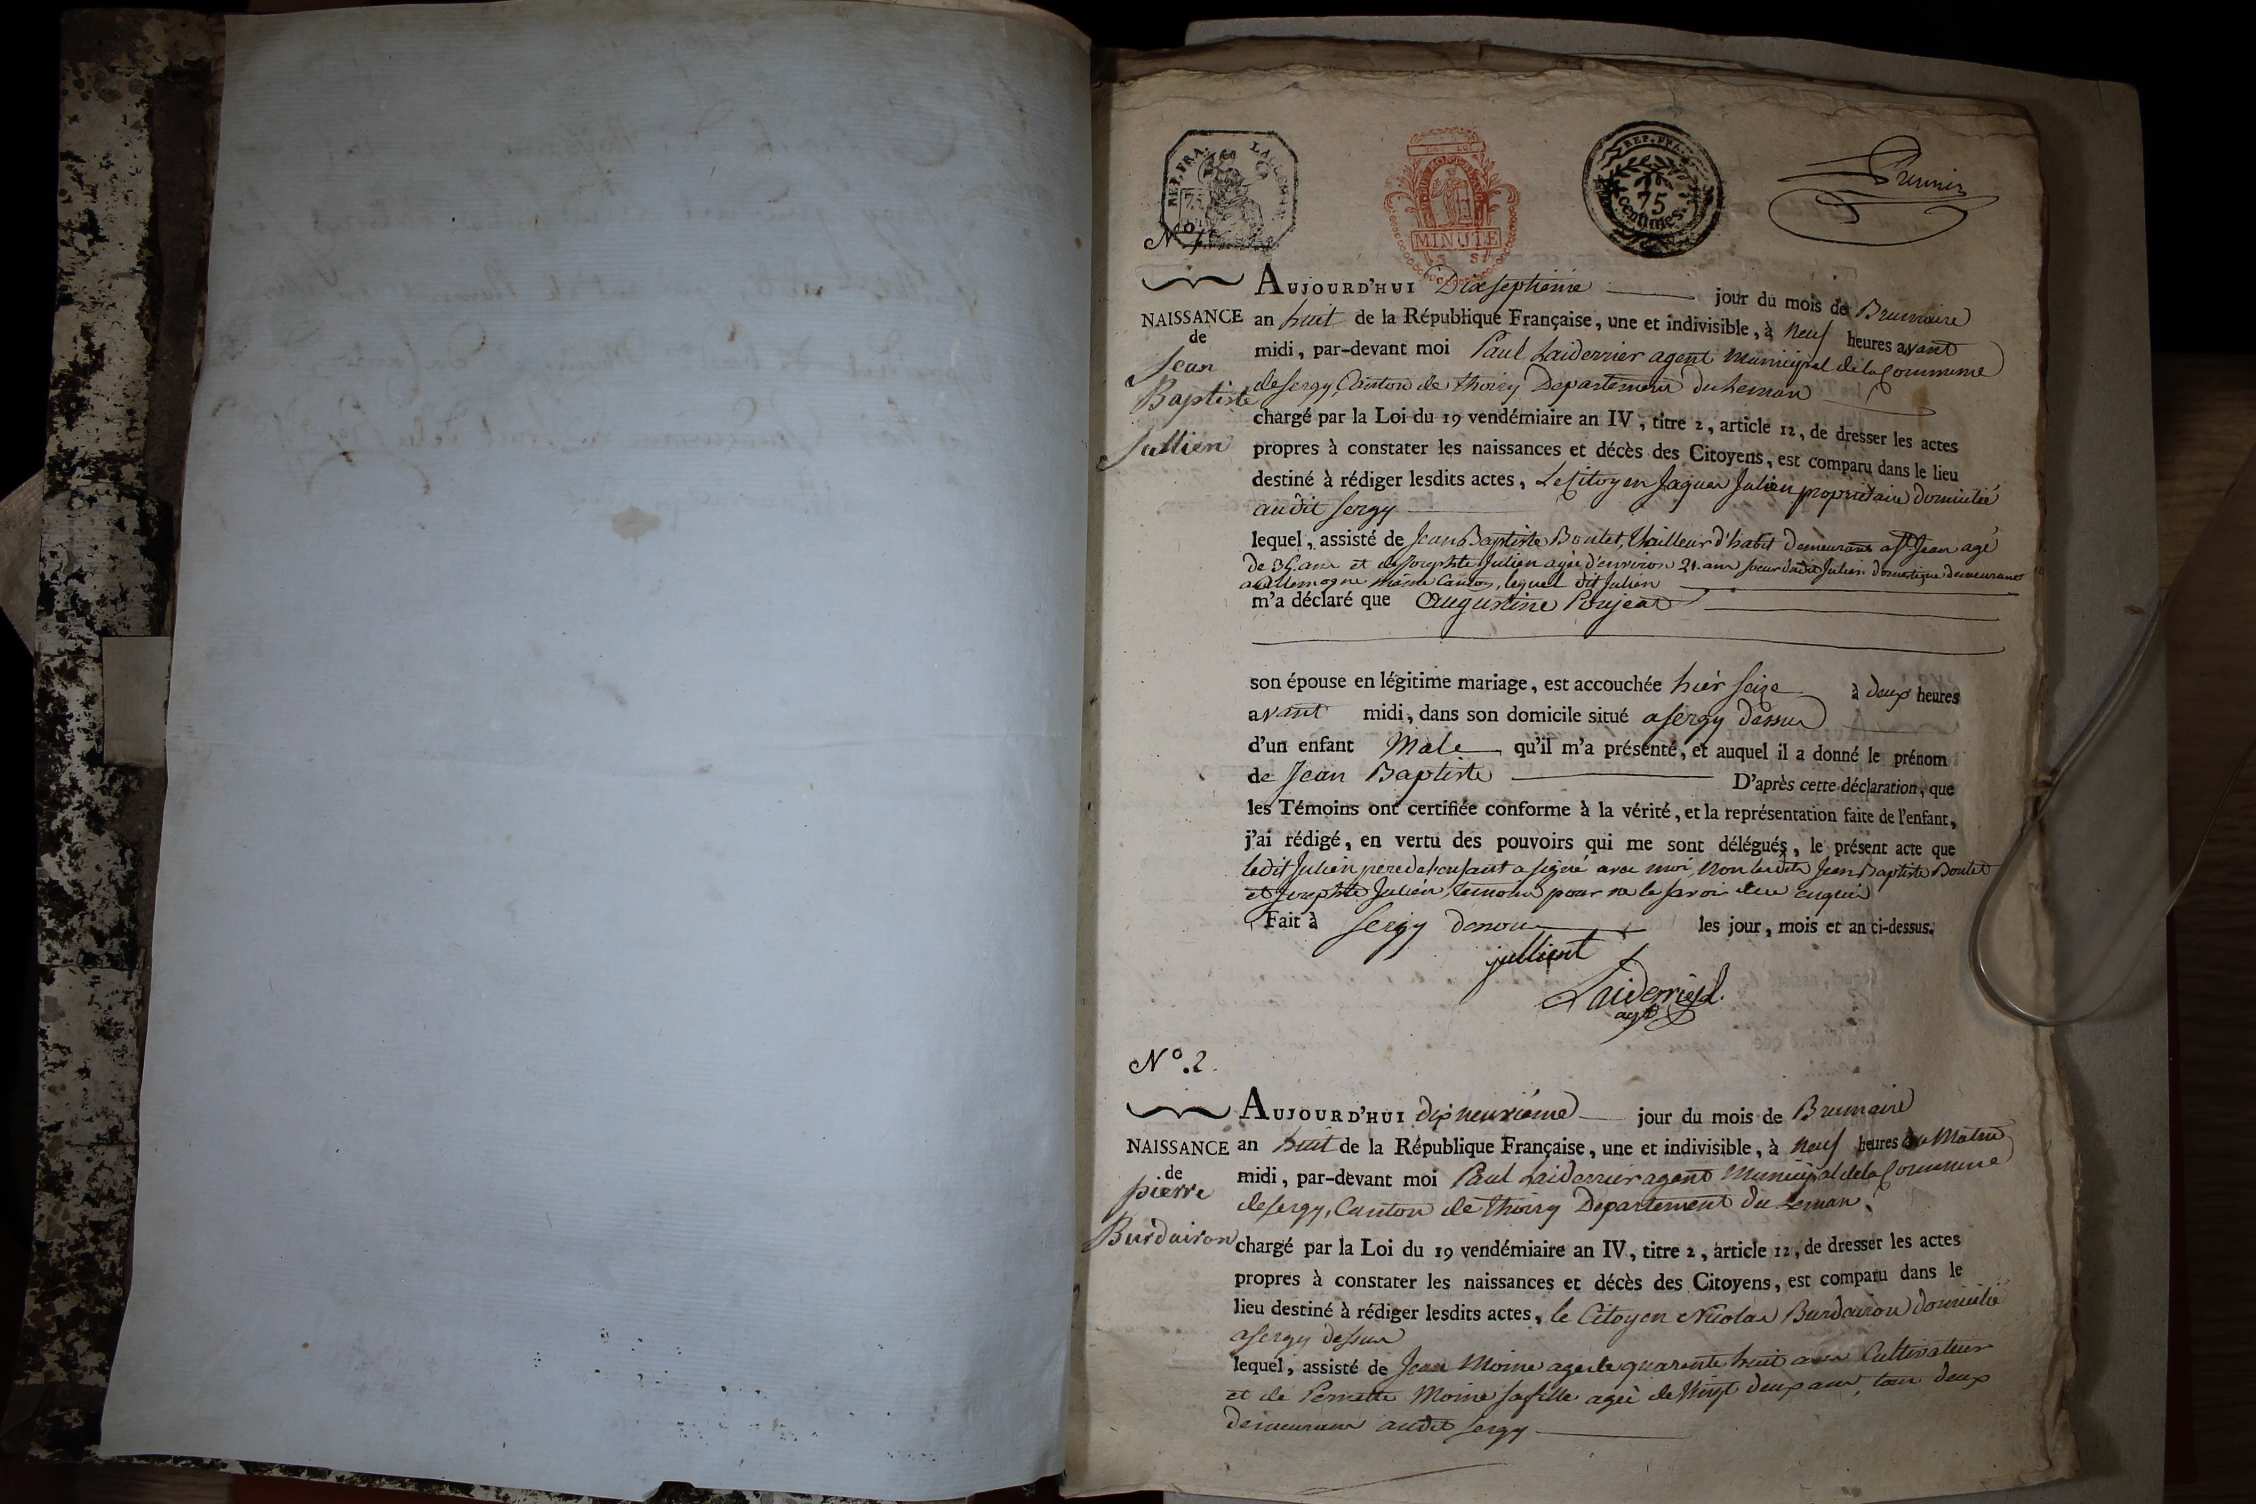 REP. FRA.
75
REP. FRA.
75
centimes.
MINUTE
Prunier
N° 1.
AUJOURD'HUI Dixseptieme jour du mois de Brumaire
NAISSANCE
de
Jean
Baptiste
Jullien
an huit de la République Française, une et indivisible, à neuf heures avant
midi, par-devant moi Paul Laiderrier agent Municipal de la Commune
de Sergy, Canton de Thoiry Departement du Leman
chargé par la Loi du 19 vendémiaire an IV, titre 2, article 12, de dresser les actes
propres à constater les naissances et décès des Citoyens, est comparu dans le lieu
destiné à rédiger lesdits actes, Le Citoyen Jaques Julien propriétaire domicilié
audit Sergy
lequel, assisté de Jean Baptiste Boulet, thailleur d'habit demeurant a St Jean agé
de 35 ans et de Josephte Julien agée d'environ 21 ans soeur dudit Julien domestique demeurant
a Allemogne même Canton, lequel dit Julien
m'a déclaré que Augustine Poujeat
son épouse en légitime mariage, est accouchée hier seize à deux heures
avant midi, dans son domicile situé a Sergy dessus
d'un enfant Male qu'il m'a présenté, et auquel il a donné le prénom
de Jean Baptiste D'après cette déclaration, que
les Témoins ont certifiée conforme à la vérité, et la représentation faite de l'enfant,
j'ai rédigé, en vertu des pouvoirs qui me sont délégués, le présent acte que
ledit Julien pere de l'enfant a signé avec moi, non lesdits Jean Baptiste Boulet
et Josephte Julien temoins pour ne le savoir de ce enquis
Fait à Sergy dessus les jour, mois et an ci-dessus.
jullient
Laiderrier
agt
N°. 2.
AUJOURD'HUI dix neuviéme jour du mois de Brumaire
NAISSANCE
de
pierre
Burdairon
an huit de la République Française, une et indivisible, à neuf heures du Matin
midi, par-devant moi Paul Laiderrier agent Municipal de la Commune
de Sergy, Canton de Thoiry Departement du Leman.
chargé par la Loi du 19 vendémiaire an IV, titre 2, article 12, de dresser les actes
propres à constater les naissances et décès des Citoyens, est comparu dans le
lieu destiné à rédiger lesdits actes, le Citoyen Nicolas Burdairon domicilié
a Sergy dessus
lequel, assisté de Jean Moine agé de quarente huit ans Cultivateur
et de Pernette Moine sa fille agée de Vingt deux ans, tous deux
demeurans audit Sergy